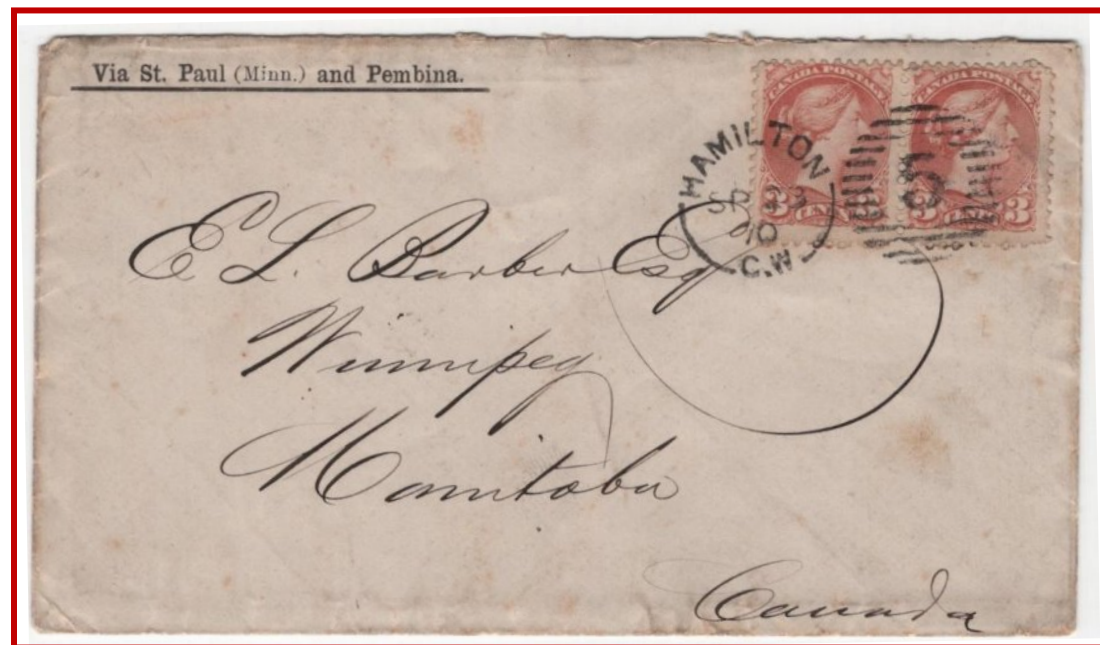 Via St. Paul (Minn.) and Pembina.
CANADA POSTAGE CANADA POSTAGE
3 CENTS 3 3
HAMILTON
10
C.W
5
E L Barber Esq
Winnipeg
Manitoba
Canada